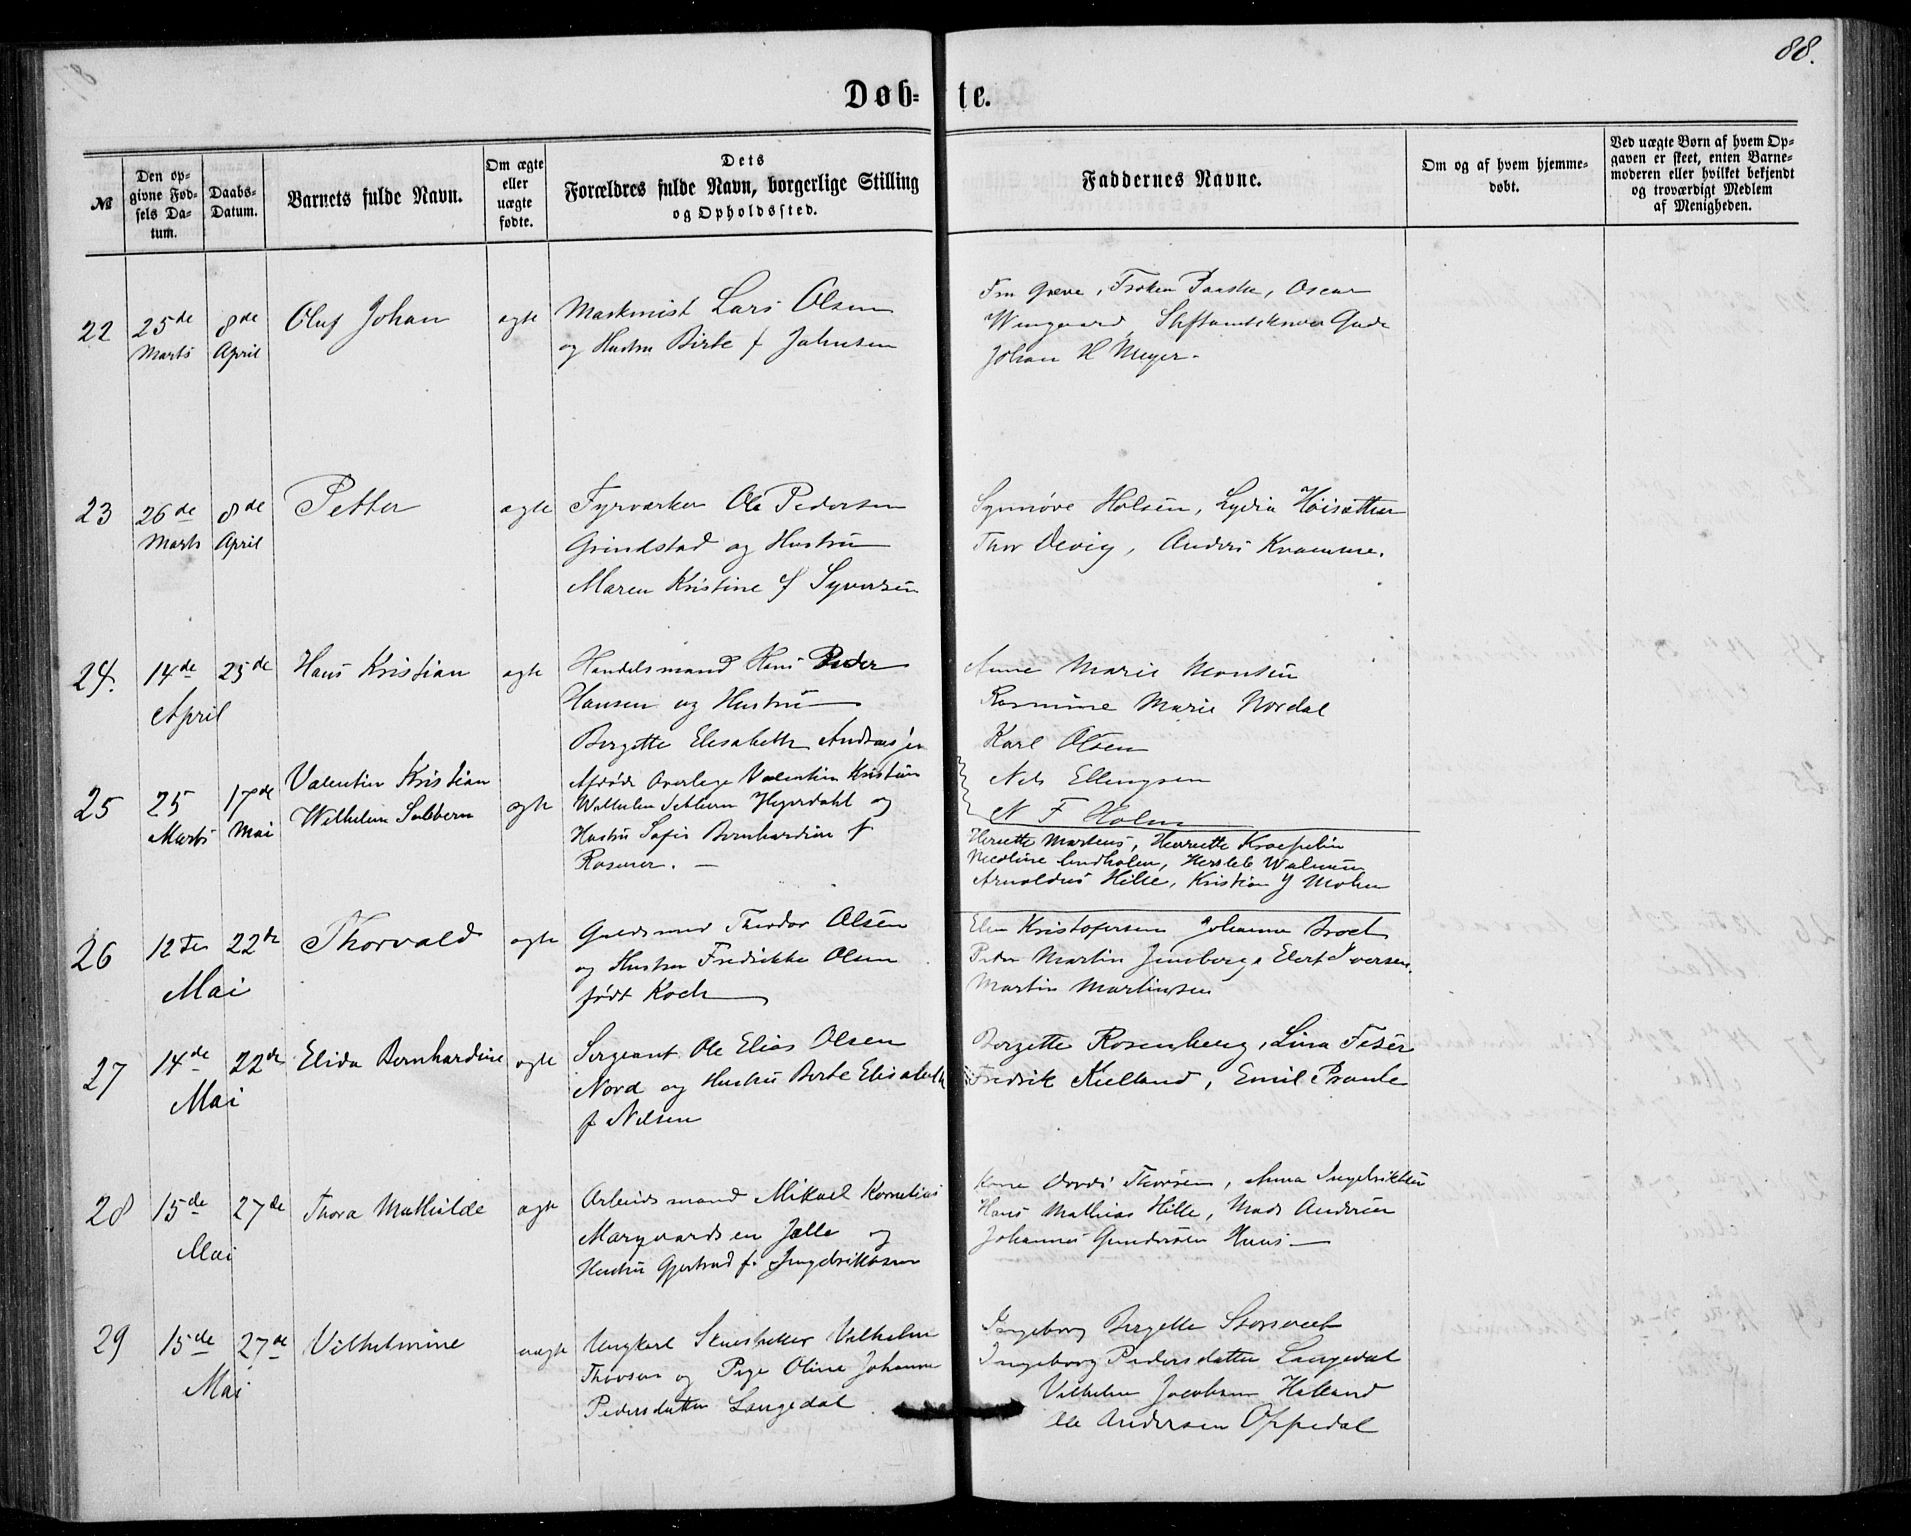 88.
Døb-te.
№
Den op-
givne Fød-
sels Da-
tum.
Daabs-
Datum.
Barnets fulde Navn.
Om ægte
eller
uægte
fødte.
Dets
Forældres fulde Navn, borgerlige Stilling
og Opholdssted.
Faddernes Navne.
Om og af hvem hjemme-
døbt.
Ved uægte Børn af hvem Op-
gaven er skeet, enten Barne-
moderen eller hvilket bekjendt
og troværdigt Medlem
af Menigheden.
22
25de
Marts
8de
April
Oluf Johan
ægte
Maskinist Lars Olsen
og Hustru Birte f Johnsen
Fru Greve, Frøken Paaske, Oscar
Wingaard, Gade
Johan H Meyer.
23
26de
Marts
8de
April
Petter
ægte
Fyrværker Ole Pedersen
Grindstad og Hustru
Maren Kristine f Syversen
Synnøve Holsen, Lydia Høisæther
Thor Devig, Anders Kramme.
24.
14de
April
25de
Hans Kristian
ægte
Handelsmand Hans Peder
Hansen og Hustru
Bergitte Elisabeth Andreasen
Anne Marie Monsen
Rasmine Marie Nordal
Karl Olsen
Nels Ellingsen
N F Holm
25
25
Marts
17de
Mai
Valentin Kristian
Wilhelm
ægte
Afdøde Overlæge Valentin Kristian
Wilhelm Hejerdahl og
Hustru Sofie Bernhardine f
Rosener.
Henriette Martens, Henriette Kraepelin
Nicoline Lindholm, Hersleb Walnum
Arnoldus Hille, Kristian J Mohn
26
12te
Mai
22de
Thorvald
ægte
Guldsmed Theodor Olsen
og Hustru Fredrikke Olsen
født Koch
Elen Kristofersen Johanne Broch
Peder Martin Jinsberg Elert Iversen.
Martin Martinsen
27
14de
Mai
22de
Elida Bernhardine
ægte
Sergeant Ole Elias Olsen
Nord og Hustru Berte Elisabeth
f Nilsen
Bergitte Rosenberg, Lina Feser
Fredrik Kielland, Emil Prante
28
15de
Mai
27de
Thora Mathilde
ægte
Arbeidsmand Mikael Kornelius
Margvardsen Jælle og
Hustru Gjertrud f. Ingebriktsen
Kone Dordi Thorsen, Anna Ingebriktsen
Hans Mathias Hille, Mads Andersen
Johannes Gundersen Huus
29
15de
Mai
27de
Vilhelmine
uægte
Ungkarl Vilhelm
Thorsen og Pige Oline Johanne
Pedersdatter Langedal
Ingeborg Bergitte Storsveet
Ingeborg Pedersdatter Langedal
Vilhelm Jacobsen Helland
Ole Andersen Oppedal